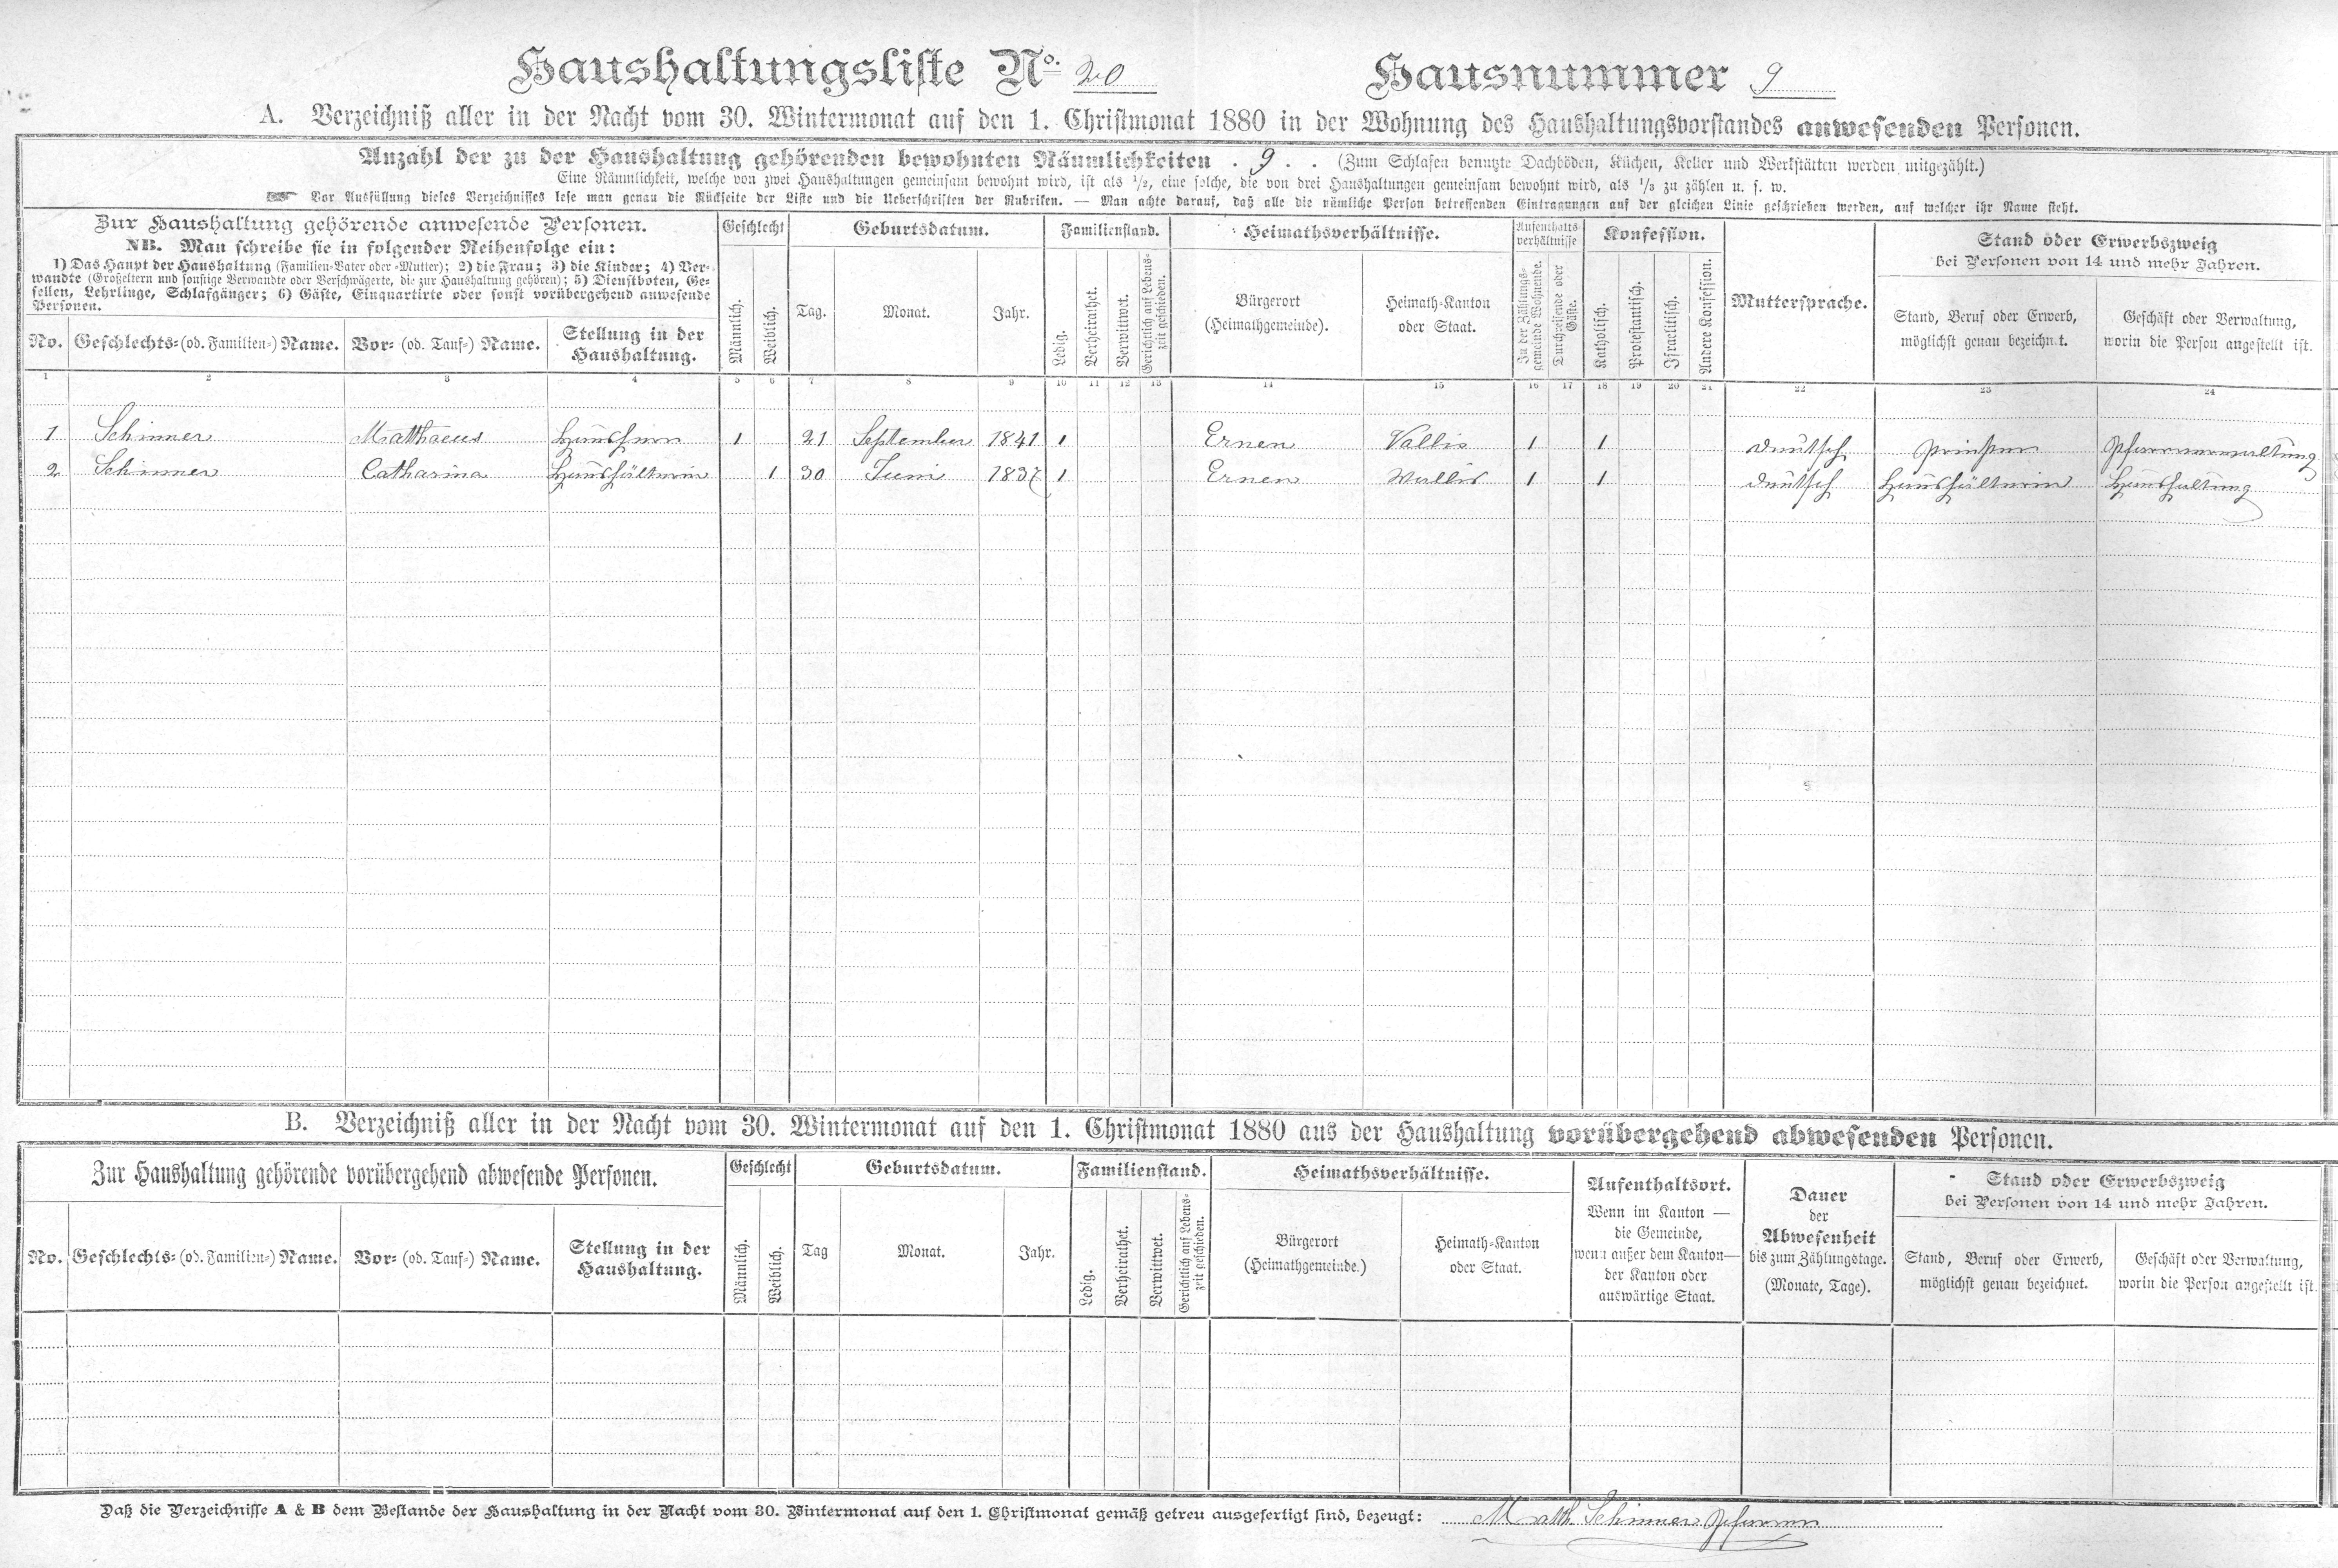 Haushaltungsliste No. 20 Hausnummer 9
A. Verzeichniß aller in der Nacht vom 30. Wintermonat auf den 1. Christmonat 1880 in der Wohnung des Haushaltungsvorstandes anwesenden Personen.
Anzahl der zu der Haushaltung gehörenden bewohnten Räumlichkeiten . 9 . . (Zum Schlafen benutzte Dachböden, Küchen, Keller und Werkstätten werden mitgezählt.)
Eine Räumlichkeit, welche von zwei Haushaltungen gemeinsam bewohnt wird, ist als 1/2, eine solche, die von drei Haushaltungen gemeinsam bewohnt wird, als 1/3 zu zählen u. s. w.
☞ Vor Ausfüllung dieses Verzeichnisses lese man genau die Rückseite der Liste und die Ueberschriften der Rubriken. — Man achte darauf, daß alle die nämliche Person betreffenden Eintragungen auf der gleichen Linie geschrieben werden, auf welcher ihr Name steht.
Zur Haushaltung gehörende anwesende Personen.
NB. Man schreibe sie in folgender Reihenfolge ein:
1) Das Haupt der Haushaltung (Familien-Vater oder -Mutter); 2) die Frau; 3) die Kinder; 4) Ver-
wandte (Großeltern und sonstige Verwandte oder Verschwägerte, die zur Haushaltung gehören); 5) Dienstboten, Ge-
sellen, Lehrlinge, Schlafgänger; 6) Gäste, Einquartirte oder sonst vorübergehend anwesende
Personen.
No. Geschlechts- (od. Familien-) Name. Vor- (od. Tauf-) Name. Stellung in der
Haushaltung.
Geschlecht
Männlich. Weiblich.
Geburtsdatum.
Tag. Monat. Jahr.
Familienstand.
Ledig. Verheirathet. Verwittwet. Gerichtlich auf Lebens-
zeit geschieden.
Heimathsverhältnisse.
Bürgerort
(Heimathgemeinde).
Heimath-Kanton
oder Staat.
Aufenthalts-
verhältnisse
In der Zählungs-
gemeinde Wohnende.
Durchreisende oder
Gäste.
Konfession.
Katholisch. Protestantisch. Israelitisch. Andere Konfession.
Muttersprache.
Stand oder Erwerbszweig
bei Personen von 14 und mehr Jahren.
Stand, Beruf oder Erwerb,
möglichst genau bezeichnet.
Geschäft oder Verwaltung,
worin die Person angestellt ist.
1 2 3 4 5 6 7 8 9 10 11 12 13 14 15 16 17 18 19 20 21 22 23 24
1 Schinner Mathaeus 1 21 September 1841 1 Ernen Vallis 1 1 deutsch Priester Pfarrverwaltung
2 Schinner Catharina Haushälterin 1 30 Juni 1837 1 Ernen Wallis 1 1 deutsch Haushälterin Haushaltung
B. Verzeichniß aller in der Nacht vom 30. Wintermonat auf den 1. Christmonat 1880 aus der Haushaltung vorübergehend abwesenden Personen.
Zur Haushaltung gehörende vorübergehend abwesende Personen.
No. Geschlechts- (od. Familien-) Name. Vor- (od. Tauf-) Name. Stellung in der
Haushaltung.
Geschlecht
Männlich. Weiblich.
Geburtsdatum.
Tag Monat. Jahr.
Familienstand.
Ledig. Verheirathet. Verwittwet. Gerichtlich auf Lebens-
zeit geschieden.
Heimathsverhältnisse.
Bürgerort
(Heimathgemeinde.)
Heimath-Kanton
oder Staat.
Aufenthaltsort.
Wenn im Kanton —
die Gemeinde,
wenn außer dem Kanton—
der Kanton oder
auswärtige Staat.
Dauer
der
Abwesenheit
bis zum Zählungstage.
(Monate, Tage).
Stand oder Erwerbszweig
bei Personen von 14 und mehr Jahren.
Stand, Beruf oder Erwerb,
möglichst genau bezeichnet.
Geschäft oder Verwaltung,
worin die Person angestellt ist.
Daß die Verzeichnisse A & B dem Bestande der Haushaltung in der Nacht vom 30. Wintermonat auf den 1. Christmonat gemäß getreu ausgefertigt sind, bezeugt: Math. Schinner Pfarrer